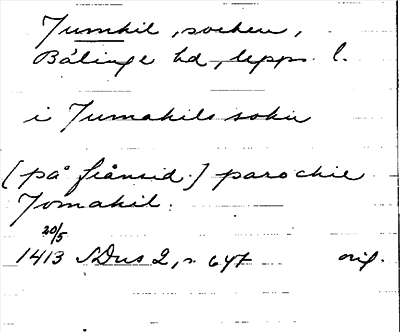 Jumkil, socken,
Bålinge hd, Upps. l.
i Jumakils sokn
[på frånsid.] parochie
Jomakil.
20/5
1413 SDns 2, s. 647 orig.